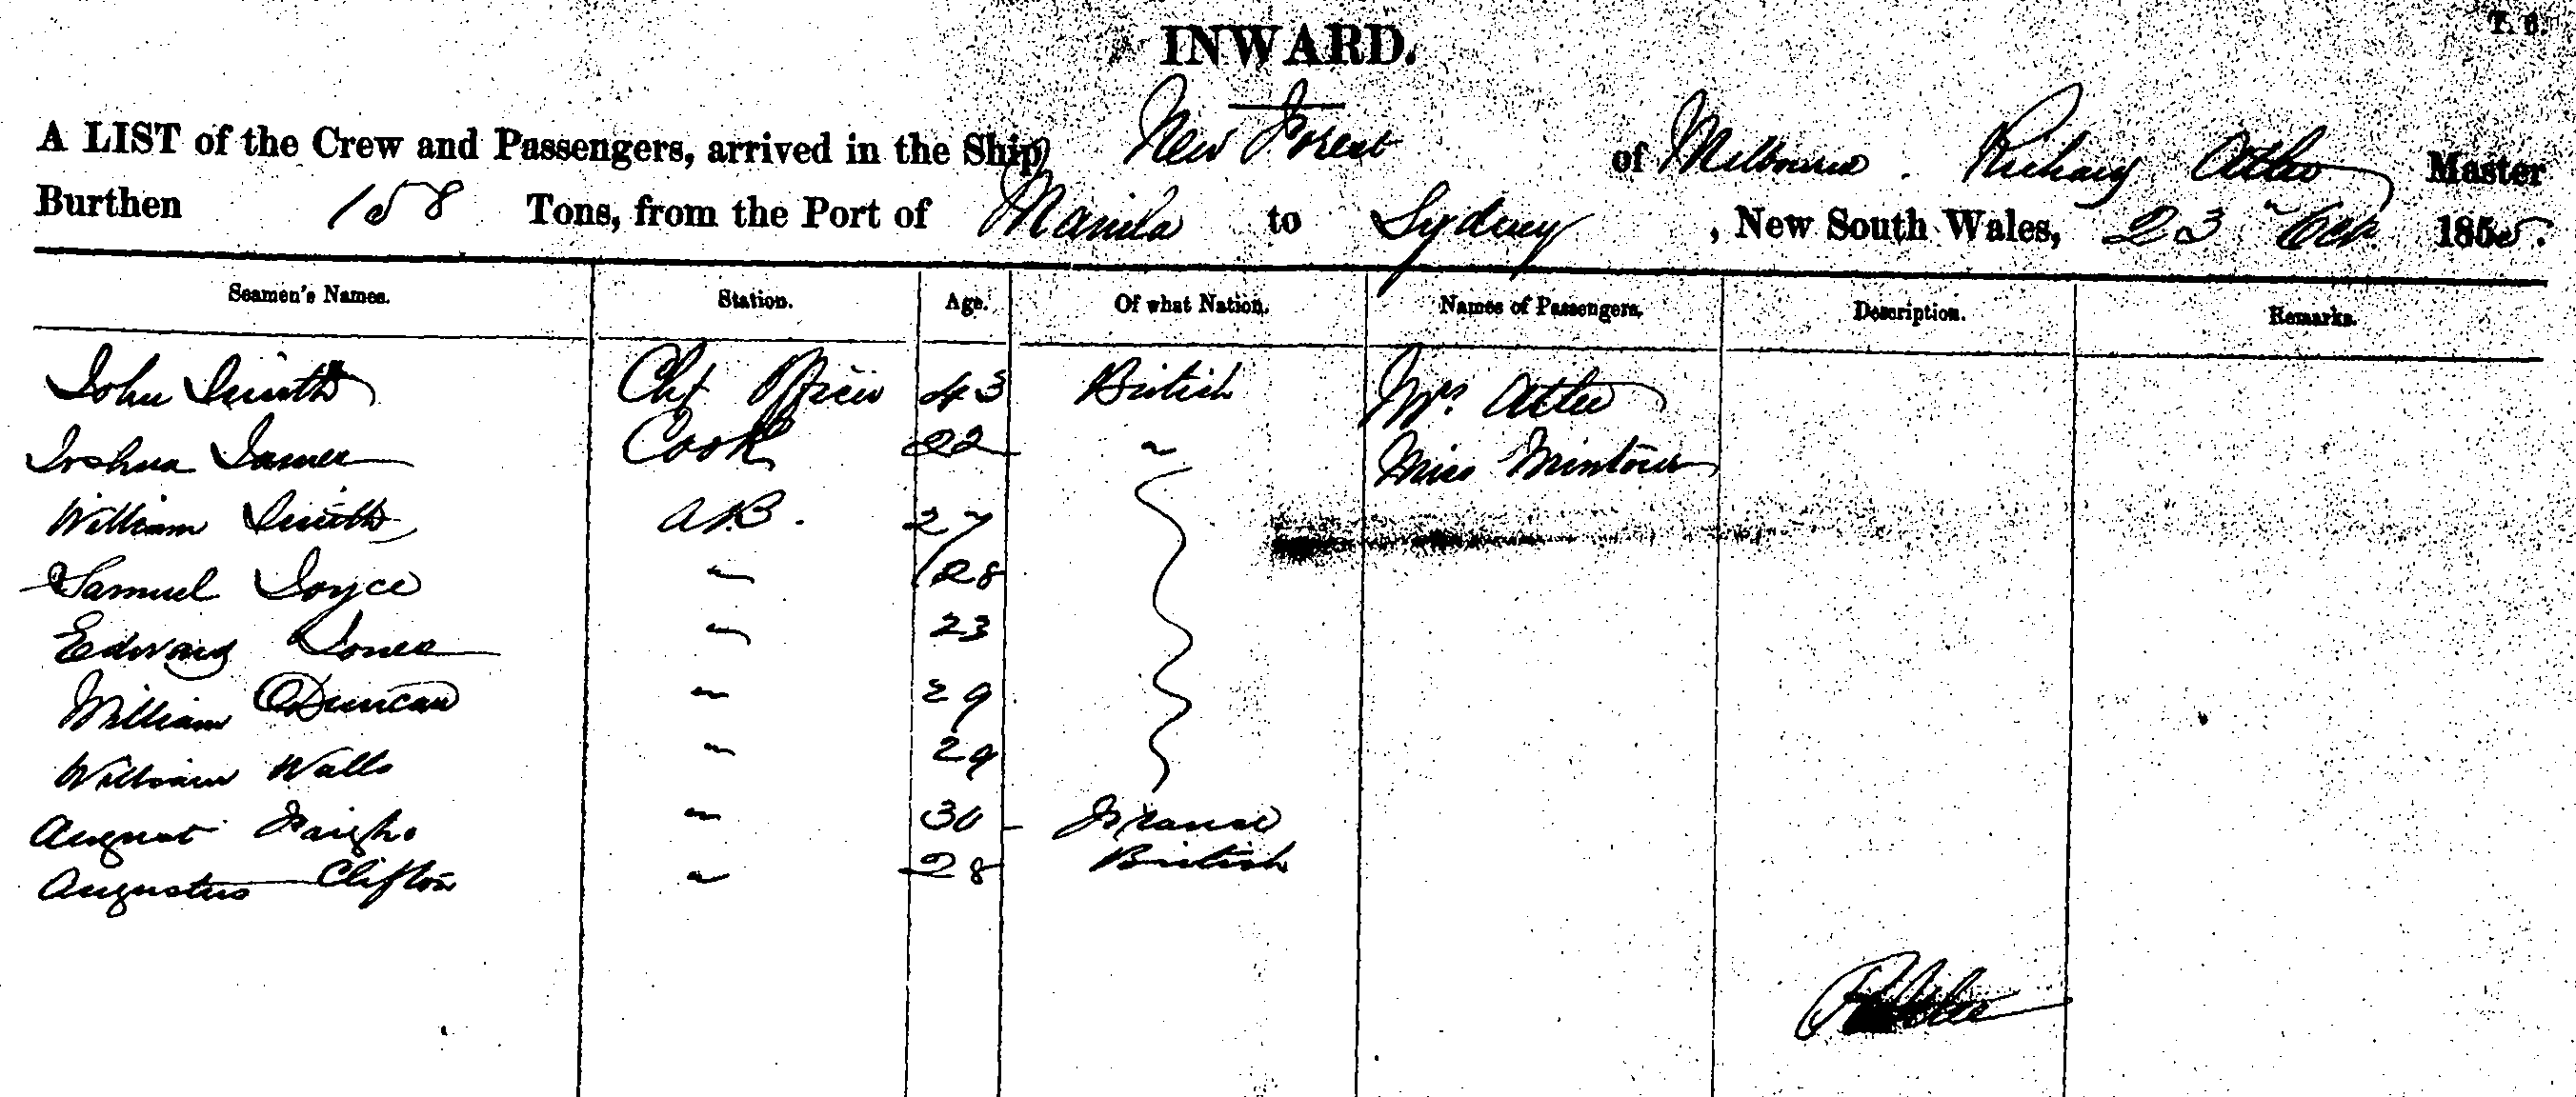 T. 6.
INWARD.
A LIST of the Crew and Passengers, arrived in the Ship New Forest of Melbourne. Richard Atlee Master
Burthen 158 Tons, from the Port of Manila to Sydney, New South Wales, 23 Oct 1855.
Seamen's Names. Station. Age. Of what Nation. Names of Passengers. Description. Remarks.
John Smith Chf Officer 43 British Mrs. Atlee
Joshua James Cook 22 " Miss
William Smith A.B. 27
Samuel Joyce " 28
Edward Jones " 23
William Duncan " 29
William Walls " 29
August " 30 France
Augustus Clifton " 28 British